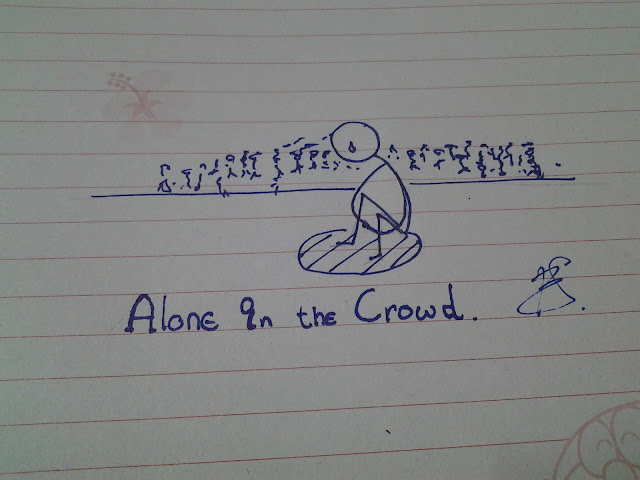 Alone In the Crowd.